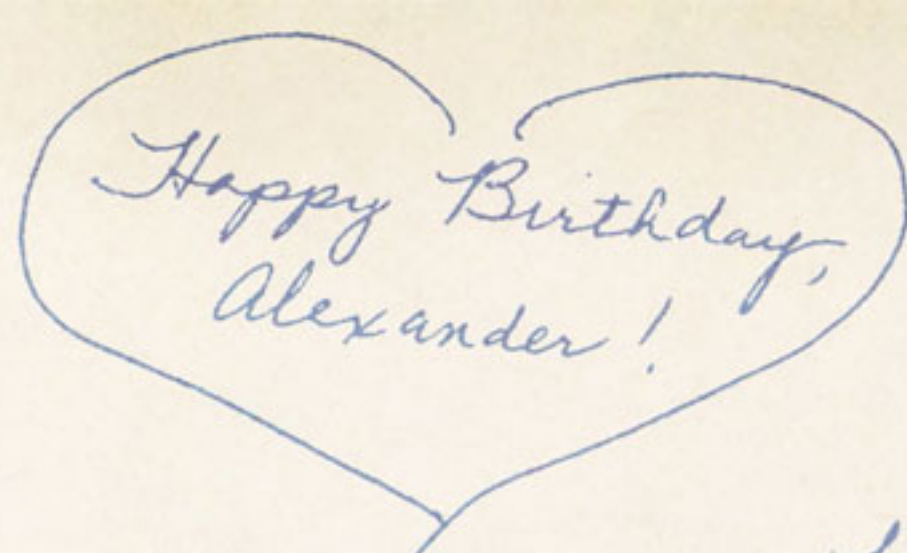 Happy Birthday,
Alexander!